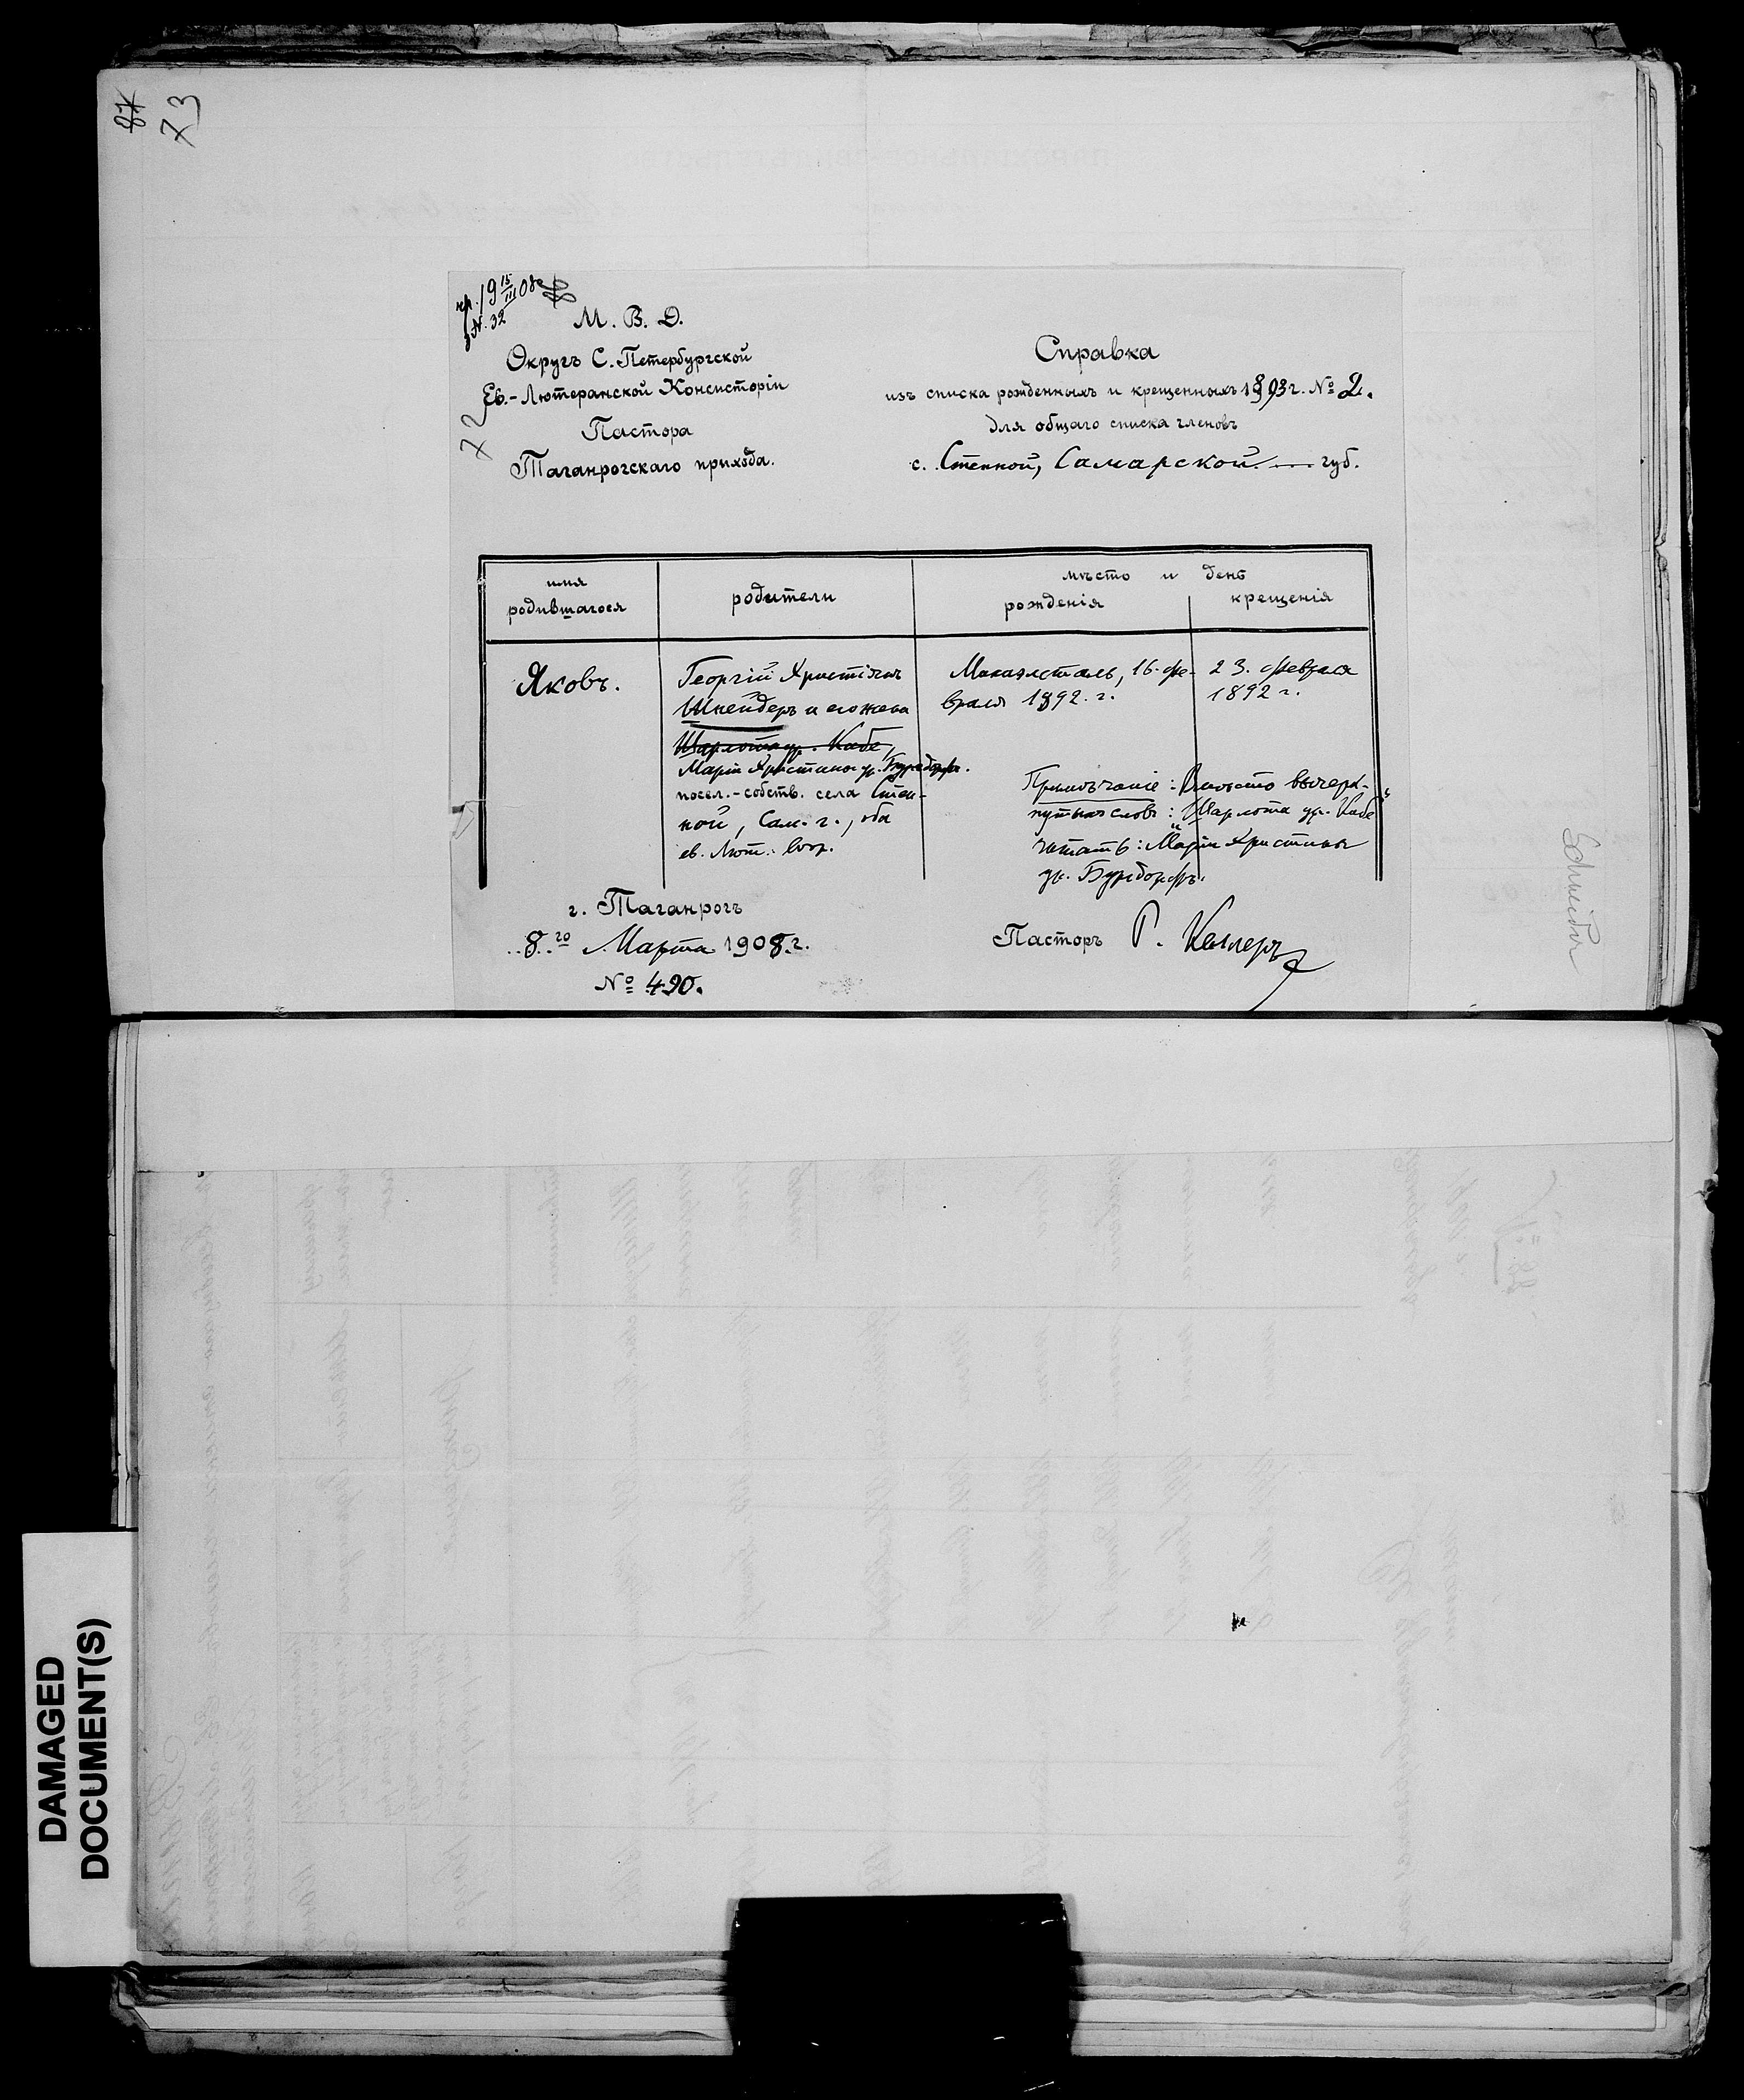 87
73
пр. 19 15/III 08 г.
№. 32
М. В. Д.
Округъ С. Петербургской
Ев.-Лютеранской Консисторіи
Пастора
Таганрогскаго прихода.
72
Справка
изъ списка рожденныхъ и крещенныхъ 1893 г. № 2.
для общаго списка членовъ
с. Степной, Самарской губ.
имя
родившагося
родители
мѣсто и день
рожденія
крещенія
Яковъ.
Георгій Христіанъ
Шнейдеръ и его жена
Шарлота ур. Кабе,
Марія Христина ур. Бургдорфъ.
посел.-собств. села Степ-
ной, Сам. г., оба
ев. Лют. вѣр.
16. фе-
враля 1892. г.
23. февраля
1892 г.
Примѣчаніе: Вмѣсто вычерк-
нутыхъ словъ: "Шарлота ур. Кабе"
читать: "Марія Христина
ур. Бургдорфъ.
г. Таганрогъ
8.го Марта 1908 г.
№ 490.
Пасторъ Р. Келлеръ
Schneider
DAMAGED
DOCUMENT(S)